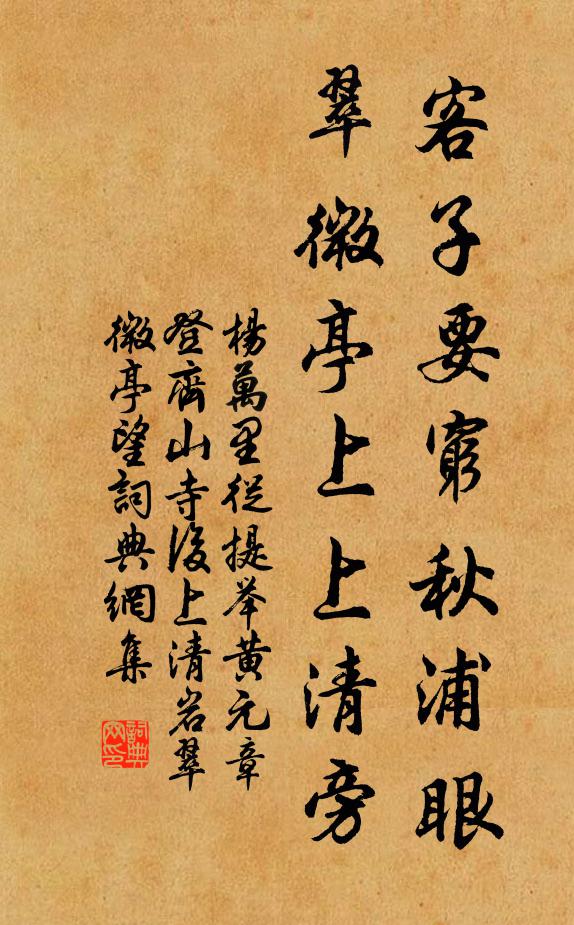 客子要窮秋浦眼
翠微亭上上清旁
楊萬里從提举黄元章
登齊山寺後上清岩翠
微亭望詞典網集
詞典
网印